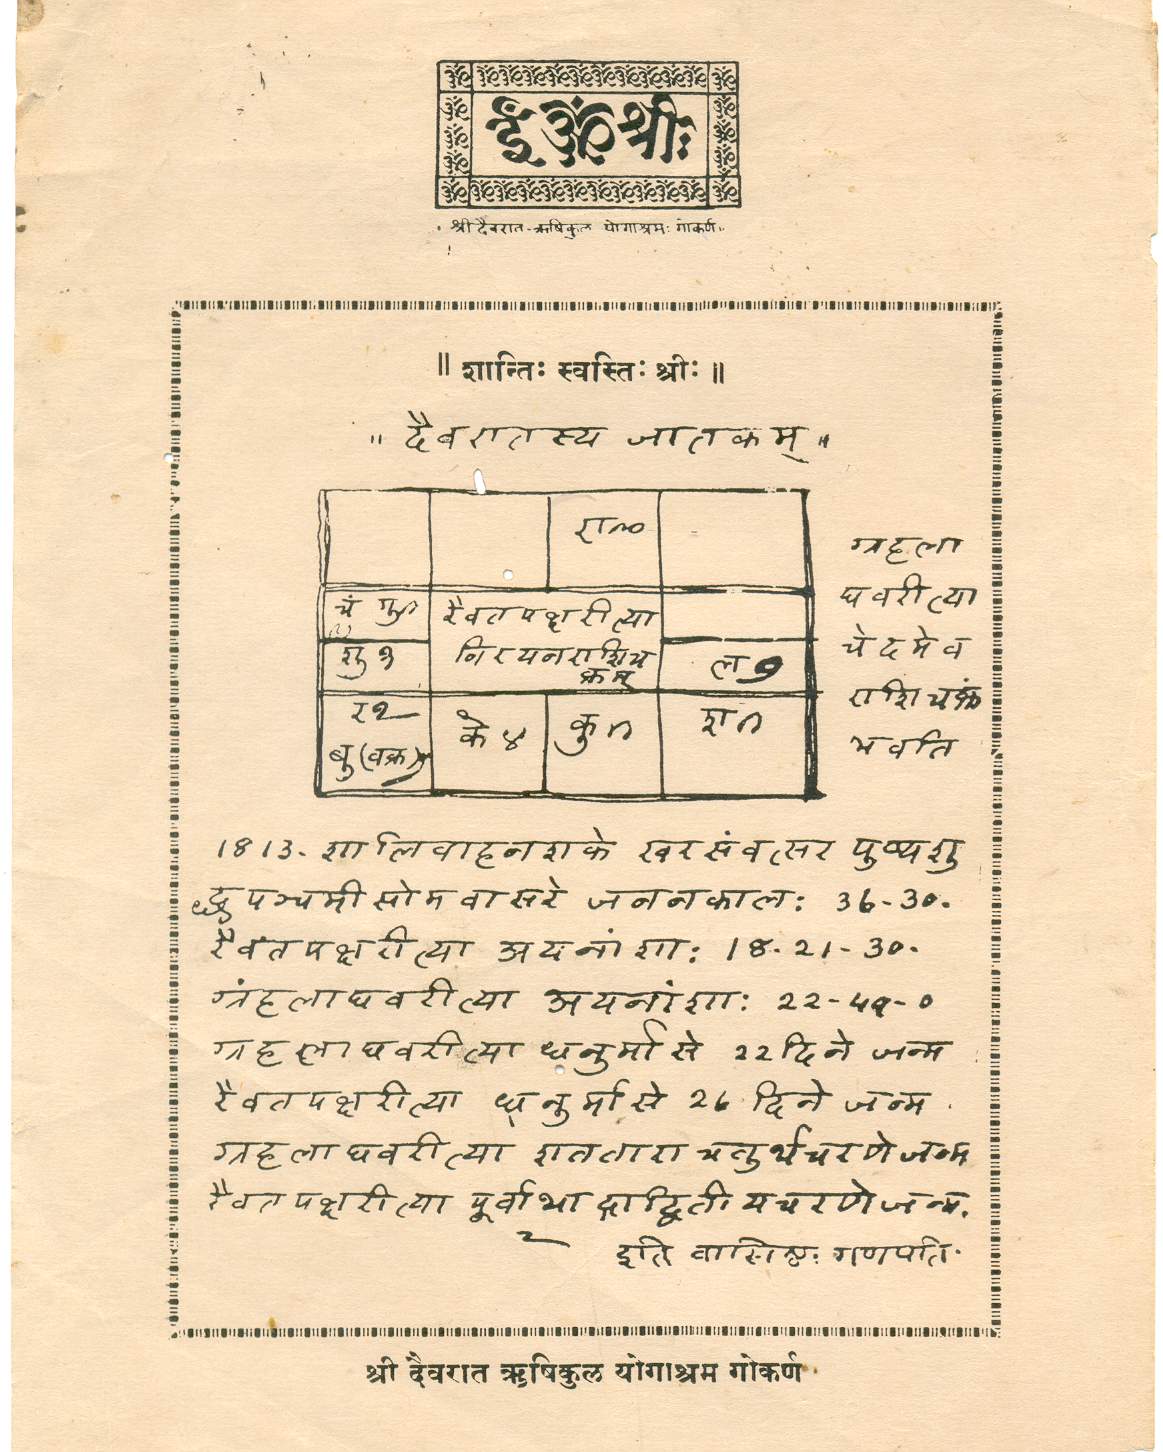 ईं ॐ श्रीः
श्री दैवरात-ऋषिकुल योगाश्रमः गोकर्ण
॥ शान्तिः स्वस्तिः श्रीः ॥
॥ दैवरातस्य जातकम् ॥
रा
चं गु
शु १
रैवतपक्षरीत्या
निरयनराशिच
क्रम्
ल
र २
बु (वक्र)
के ४
कु
श
ग्रहला
घवरीत्या
चेदमेव
राशिचक्रं
भवति
1813. शालिवाहनशके खरसंवत्सर पुष्यशु
द्धपञ्चमीसोमवासरे जननकालः 36-30.
रैवतपक्षरीत्या अयनांशाः 18-21-30.
ग्रहलाघवरीत्या अयनांशाः 22-49-0
ग्रहलाघवरीत्या धनुर्मासे 22 दिने जन्म
रैवतपक्षरीत्या धनुर्मासे 26 दिने जन्म
ग्रहलाघवरीत्या शततारा चतुर्थचरणे जन्म
रैवतपक्षरीत्या पूर्वाभाद्राद्वितीयचरणे जन्म.
इति वासिष्ठः गणपतिः
श्री दैवरात ऋषिकुल योगाश्रम गोकर्ण